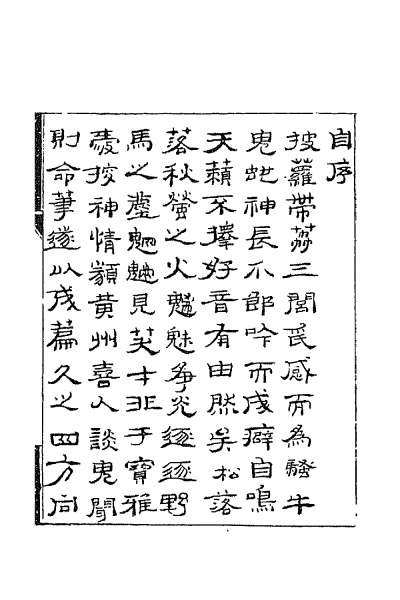 自序
披蘿帶荔三閭氏感而為騷牛
鬼虵神長爪郎吟而成癖自鳴
天籟不擇好音有由然矣松落
落秋螢之火魑魅爭光逐逐野
馬之塵魍魎見笑才非干寶雅
愛搜神情類黃州喜人談鬼聞
則命筆遂以成篇久之四方同